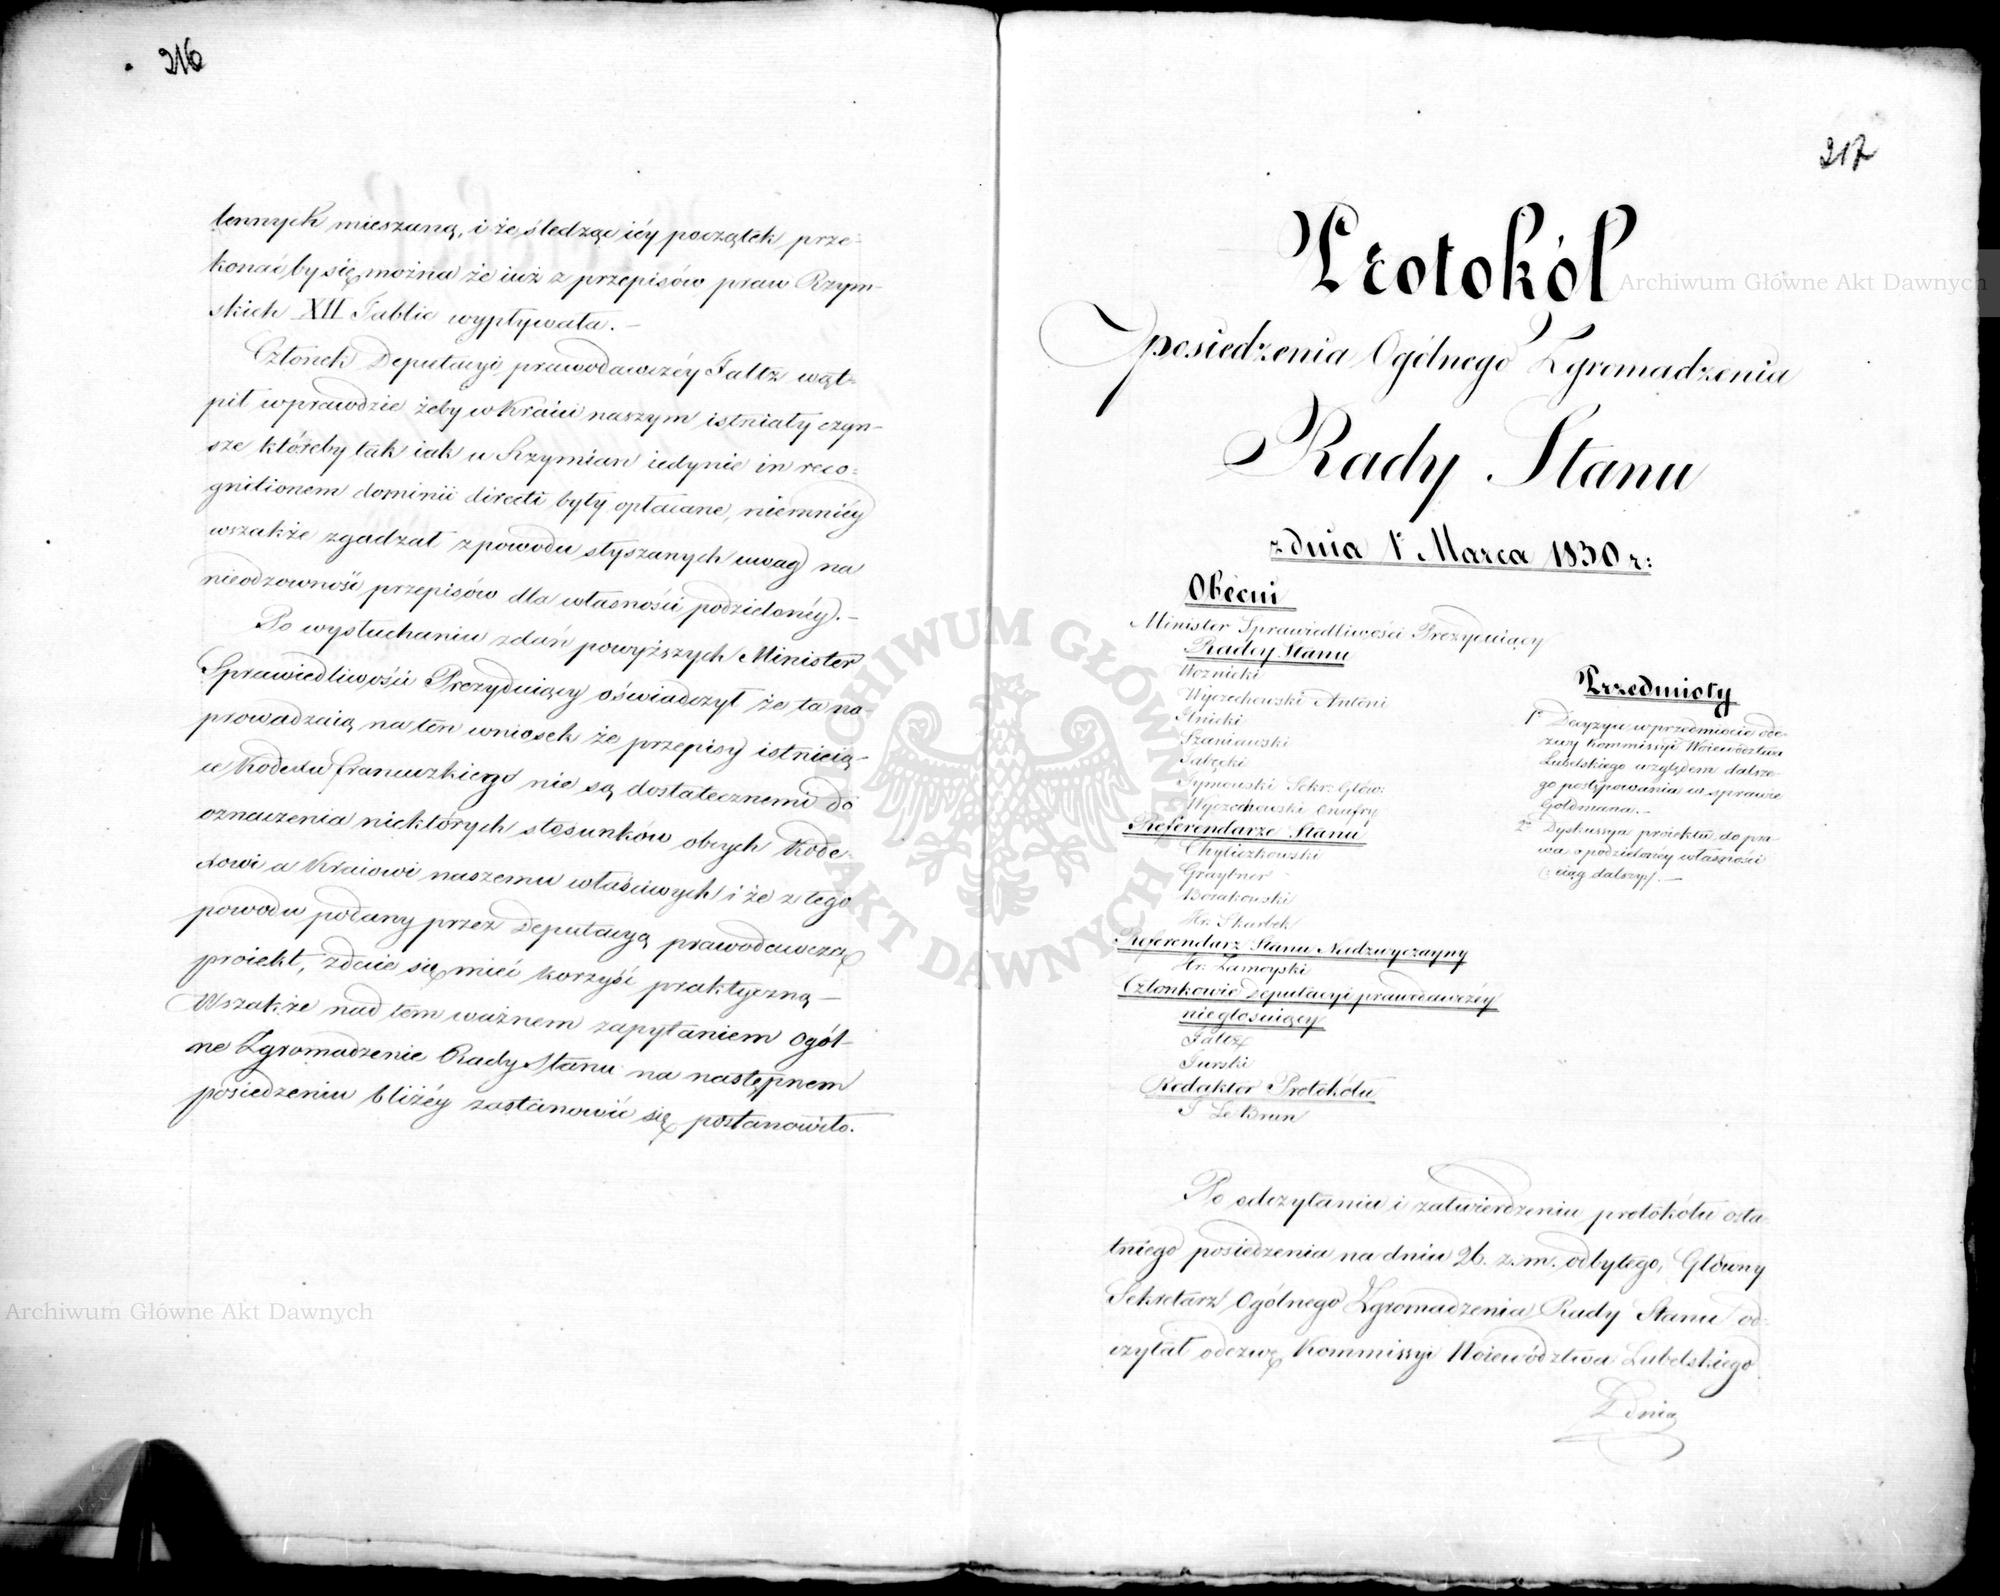 216
tennych mieszaną, i że śledząc iéy początek prze-
konać by się można że iuż z przepisów praw Rzym-
skich XII Tablic wypływała. —
Członek Deputacyi prawodawczéy Faltz wąt-
pił wprawdzie żeby w Kraiu naszym istniały czyn-
sze któreby tak iak u Rzymian iedynie in reco-
gnitionem dominii directi były opłacane, niemniéy
wszakże zgadzał z powodu słyszanych uwag na
nieodzowność przepisów dla własności podzielonéy. —
Po wysłuchaniu zdań powyższych Minister
Sprawiedliwości Prezyduiący oświadczył że ta na-
prowadzaią na ten wniosek że przepisy istnieią-
ce Kodexu francuzkiego nie są dostatecznemi do
oznaczenia niektórych stosunków obcych Kode-
xowi a Kraiowi naszemu właściwych i że z tego
powodu podany przez Deputacyą prawodawczą
proiekt, zdaie się mieć korzyść praktyczną —
Wszakże nad tem ważnem zapytaniem Ogól-
ne Zgromadzenie Rady Stanu na następnem
posiedzeniu bliżéy zastanowić się postanowiło.
217
Protokół
posiedzenia Ogólnego Zgromadzenia
Rady Stanu
z dnia 1o Marca 1830 r:
Obecni
Minister Sprawiedliwości Prezyduiący
Radcy Stanu
Woźnicki
Wyczechowski Antoni
Szaniawski
Tymowski Sekr: Główn:
Wyczechowski Onufry
Referendarze Stanu
Chyliczkowski
Graybner
Hr. Skarbek
Referendarz Stanu Nadzwyczayny
Hr. Zamoyski
Członkowie Deputacyi prawodawczéy
niegłosuiący
Faltz
Turski
Redaktor Protokółu
J Le Brun
Przedmioty
1o Decyzya w przedmiocie ode-
zwy Kommissyi Woiewództwa
Lubelskiego względem dalsze-
go postępowania w sprawie
Goldmana. —
2o Dyskussya proiektu do pra-
wa o podzielonéy własności
(ciąg dalszy). —
Po odczytaniu i zatwierdzeniu protokółu osta-
tniego posiedzenia na dniu 26. z. m. odbytego, Główny
Sekretarz Ogólnego Zgromadzenia Rady Stanu od-
czytał odezwę Kommissyi Woiewództwa Lubelskiego
Z dnia
Archiwum Główne Akt Dawnych
Archiwum Główne Akt Dawnych
ARCHIWUM GŁÓWNE AKT DAWNYCH